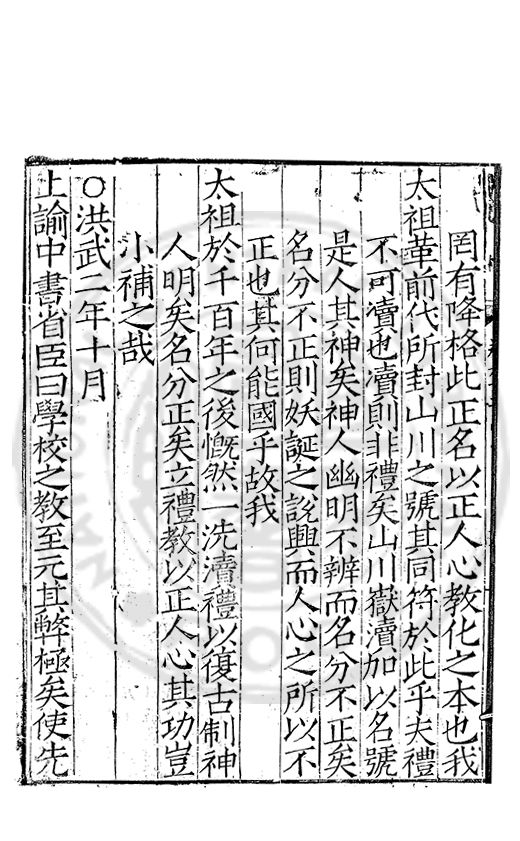 罔有降格此正名以正人心教化之本也我
太祖革前代所封山川之號其同符於此乎夫禮
不可瀆也瀆則非禮矣山川嶽瀆加以名號
是人其神矣神人幽明不辨而名分不正矣
名分不正則妖誕之說興而人心之所以不
正也其何能國乎故我
太祖於千百年之後慨然一洗瀆禮以復古制神
人明矣名分正矣立禮教以正人心其功豈
小補之哉
○洪武二年十月
上諭中書省臣曰學校之教至元其弊極矣使先